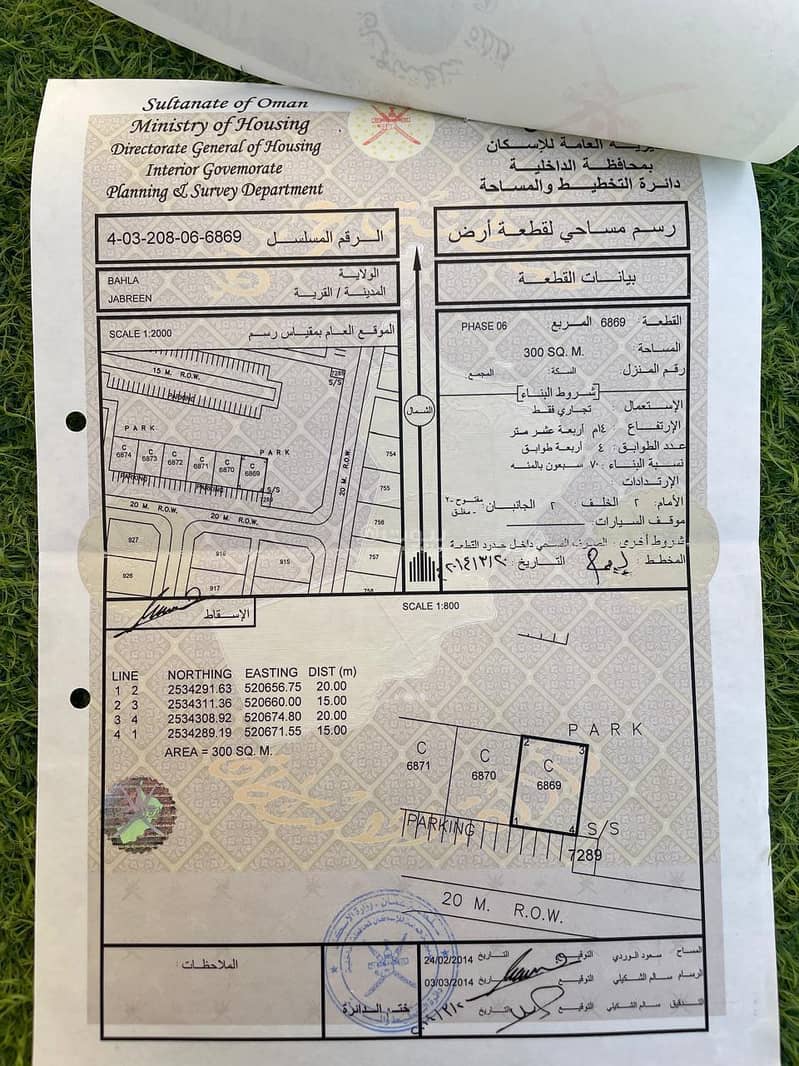 Sultanate of Oman
Ministry of Housing
Directorate General of Housing
Interior Governorate
Planning & Survey Department
العامة للإسكان
بمحافظة الداخلية
دائرة التخطيط والمساحة
4-03-208-06-6869 الرقم المسلسل
رسم مساحي لقطعة أرض
BAHLA الولاية
JABREEN المدينة / القرية
بيانات القطعة
SCALE 1:2000 الموقع العام بمقياس رسم
القطعة : 6869 المربع PHASE 06
المساحة : 300 SQ. M.
رقم المنزل : السكة : المجمع
شروط البناء
الإستعمال : تجاري فقط
الإرتفاع : ١٤م أربعة عشر متر
عدد الطوابق : ٤ أربعة طوابق
نسبة البناء : ٧٠ سبعون بالمئه
الإرتدادات
الأمام : ٢ الخلف : ٢ الجانبان : مفتوح-٢ مغلق-
موقف السيارات :
شروط أخرى : الصرف الصحي داخل حدود القطعة
المخطط : التاريخ :
الشمال
15 M. R.O.W.
PARKING
7288
S/S
PARK
PARK
C 6874
C 6873
C 6872
C 6871
C 6870
C 6869
PARKING
PARKING
S/S
7289
20 M. R.O.W.
20 M. R.O.W.
20 M. R.O.W.
754
755
756
757
758
927
926
916
917
915
الإسقاط
SCALE 1:800
LINE NORTHING EASTING DIST (m)
1 2 2534291.63 520656.75 20.00
2 3 2534311.36 520660.00 15.00
3 4 2534308.92 520674.80 20.00
4 1 2534289.19 520671.55 15.00
AREA = 300 SQ. M.
PARK
C 6871
C 6870
C 6869
2
3
1
4
PARKING
S/S
7289
20 M. R.O.W.
الملاحظات :
ختم الدائرة
المساح : سعود الوردي التوقيع التاريخ 24/02/2014
الرسام : سالم الشكيلي التوقيع التاريخ 03/03/2014
التدقيق : سالم الشكيلي التوقيع : التاريخ